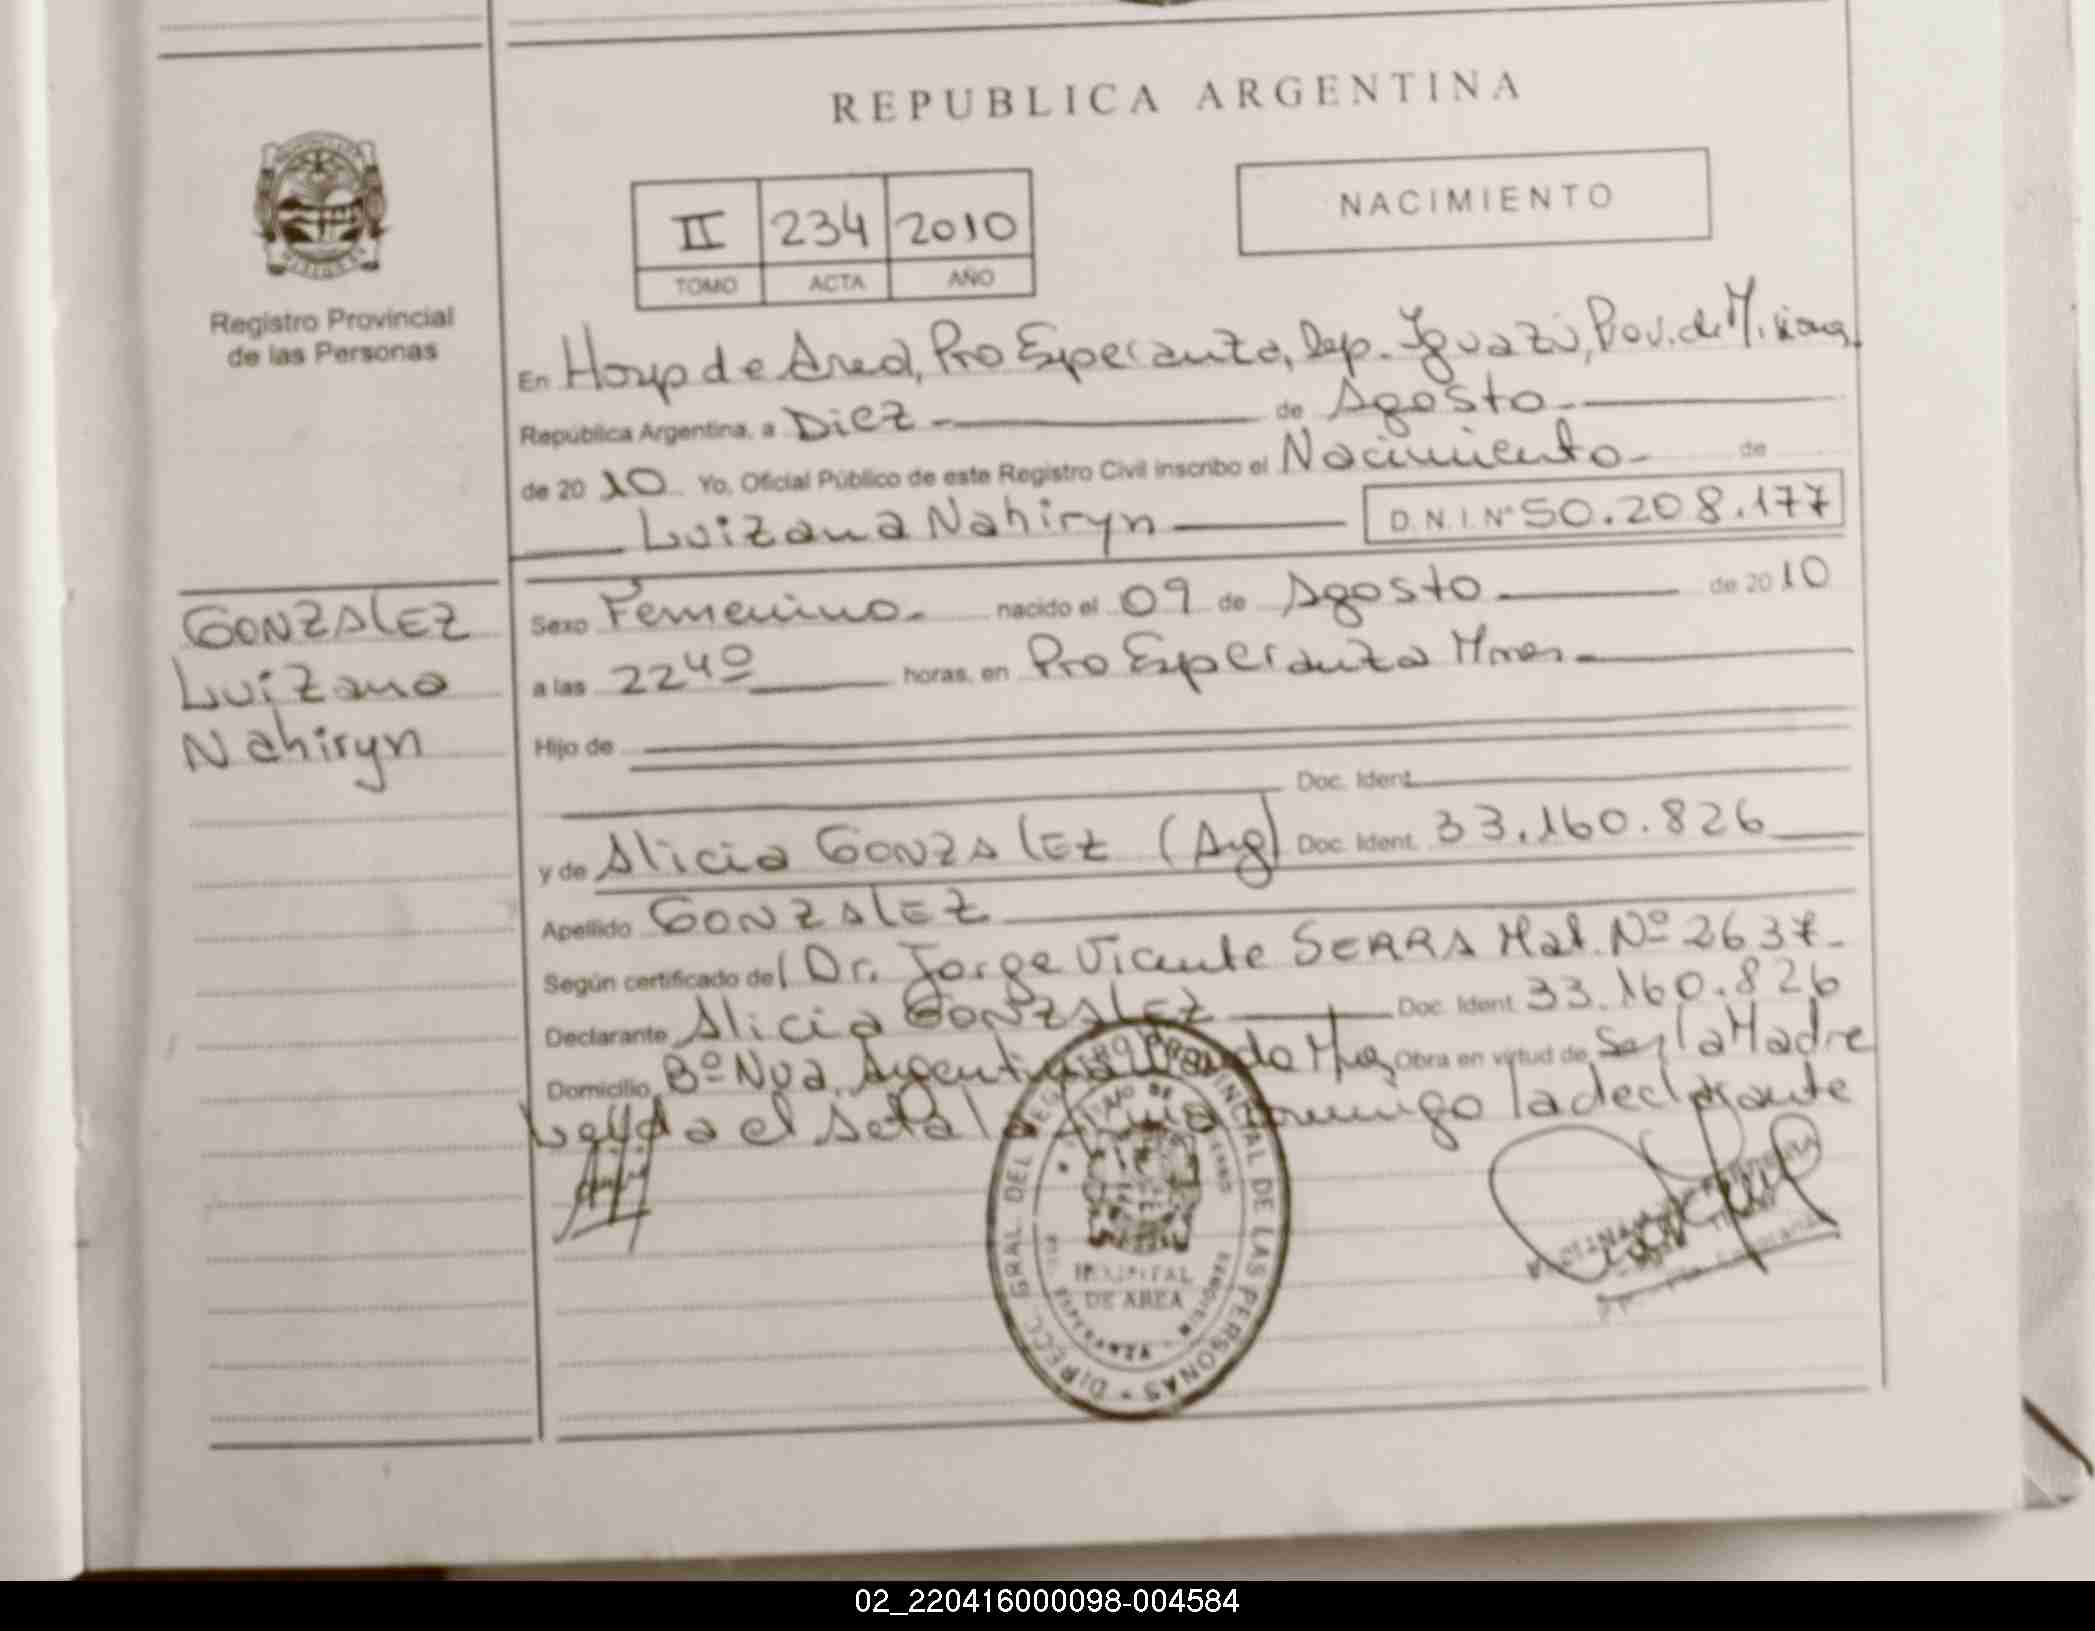 REPUBLICA ARGENTINA
NACIMIENTO
II 234 2010
TOMO ACTA AÑO
Registro Provincial
de las Personas
En Hosp de Area, Pto Esperanza, Dep. Iguazú, Prov. de Misiones
República Argentina, a Diez de Agosto
de 2010 Yo, Oficial Público de este Registro Civil inscribo el Nacimiento de
Luizana Nahiryn D.N.I. Nº 50.208.177
GONZALEZ
Luizana
Nahiryn
Sexo Femenino nacido el 09 de Agosto de 2010
a las 22 40 horas, en Pto Esperanza Mnes
Hijo de
Doc. Ident.
y de Alicia GONZALEZ (Arg) Doc. Ident. 33.160.826
Apellido GONZALEZ
Según certificado del Dr. Jorge Vicente SERRA Mat. Nº 2637
Declarante Alicia GONZALEZ Doc. Ident. 33.160.826
Domicilio Bº Nva. Argentina Obra en virtud de Ser la Madre
Leyda el Acta la firma conmigo la declarante
DIRECC. GRAL. DEL REG. PROVINCIAL DE LAS PERSONAS
HOSPITAL
DE AREA
02_220416000098-004584